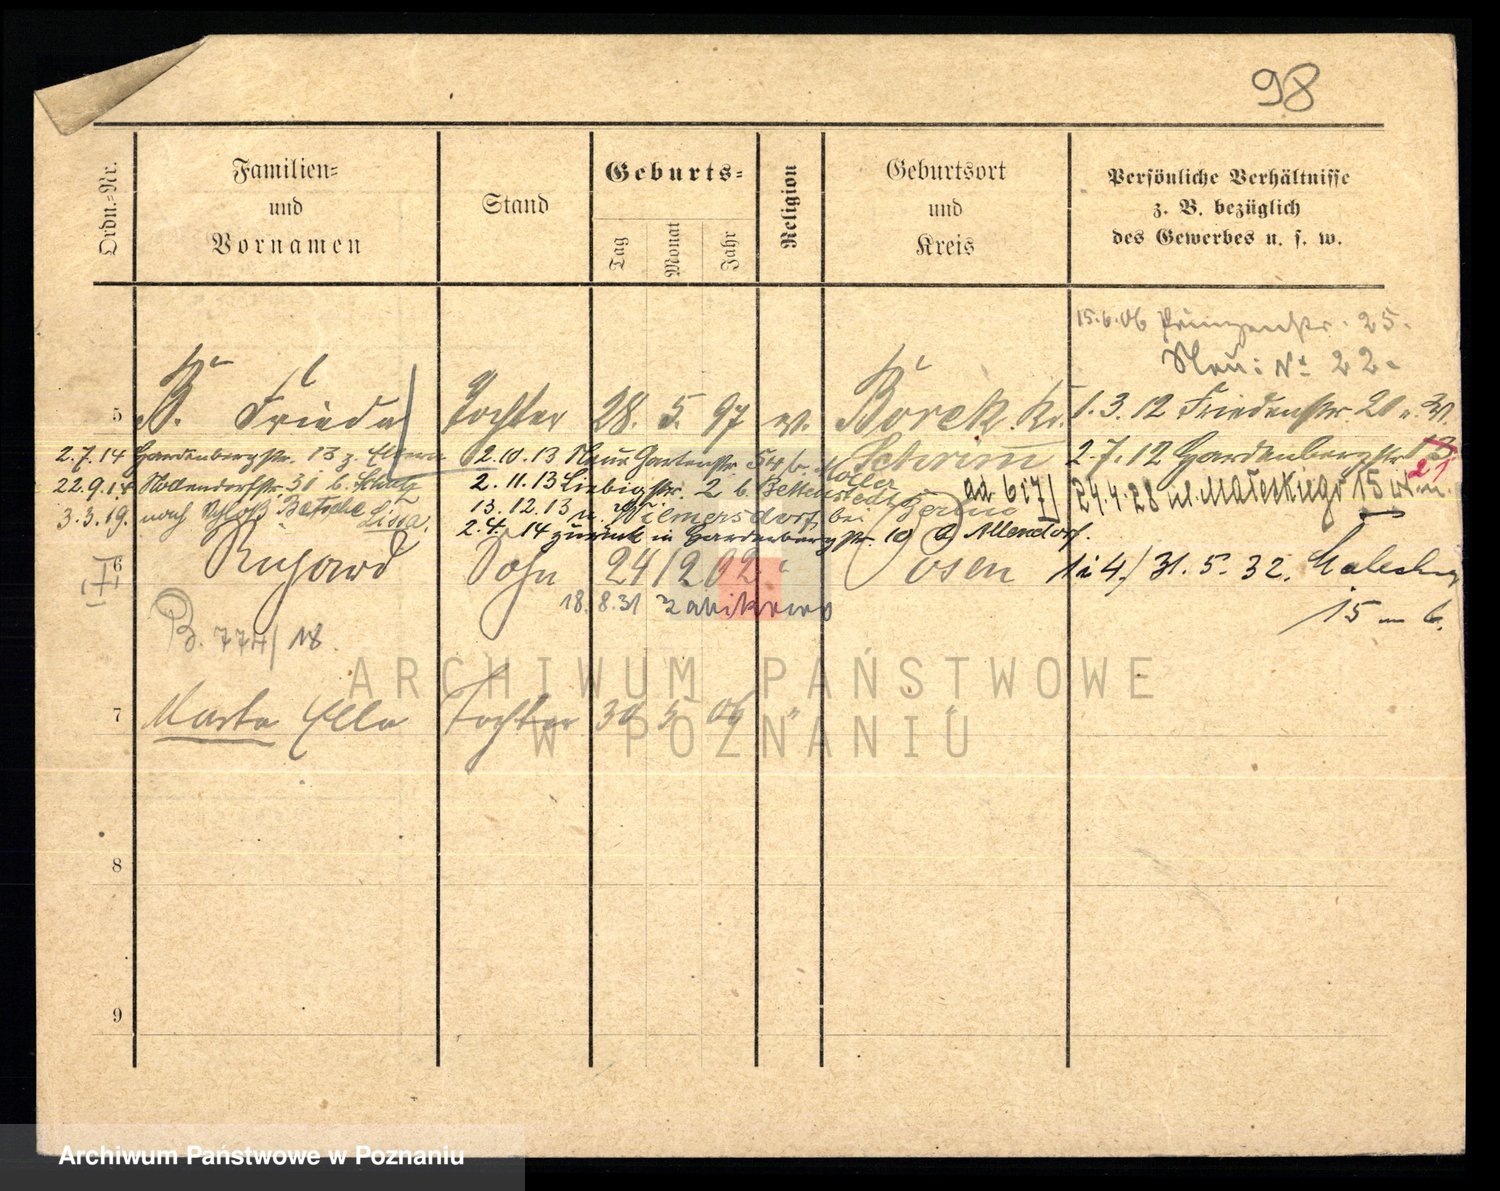 98
Ordn.-Nr.
Familien-
und
Vornamen
Stand
Geburts-
Tag
Monat
Jahr
Religion
Geburtsort
und
Kreis
Persönliche Verhältnisse
z. B. bezüglich
des Gewerbes u. s. w.
15.6.06 Prinzenstr. 25.
Neu: No 22.
5 Frieda Tochter 28. 5. 97 Borek Kr. 1.3.12 Friedenstr.
2.7.14 Hardenbergstr. 13 z. Eltern 2.10.13 Neue Gartenstr. 54 b. Schrimm 2.7.12 Hardenbergstr.
21
22.9.14 Nollendorfstr. 31 b. 2.11.13 Liebigstr. 2 b. ad 6 i 7/ 24.4.28 ul. Małeckiego 15 m.
3.3.19. nach Schloß Betsche Lissa. 13.12.13 n. Wilmersdorf bei Berlin
2.4.14 zurück in Hardenbergstr. 10 Allendorf.
6 Richard Sohn 24 12 02 " Posen 1 i 4/ 31.5.32.
18.8.31 Żabikowo 15 m 6.
B. 774/18.
7 Marta Ella Tochter 30 5 06 " "
8
9
ARCHIWUM PAŃSTWOWE
W POZNANIU
Archiwum Państwowe w Poznaniu